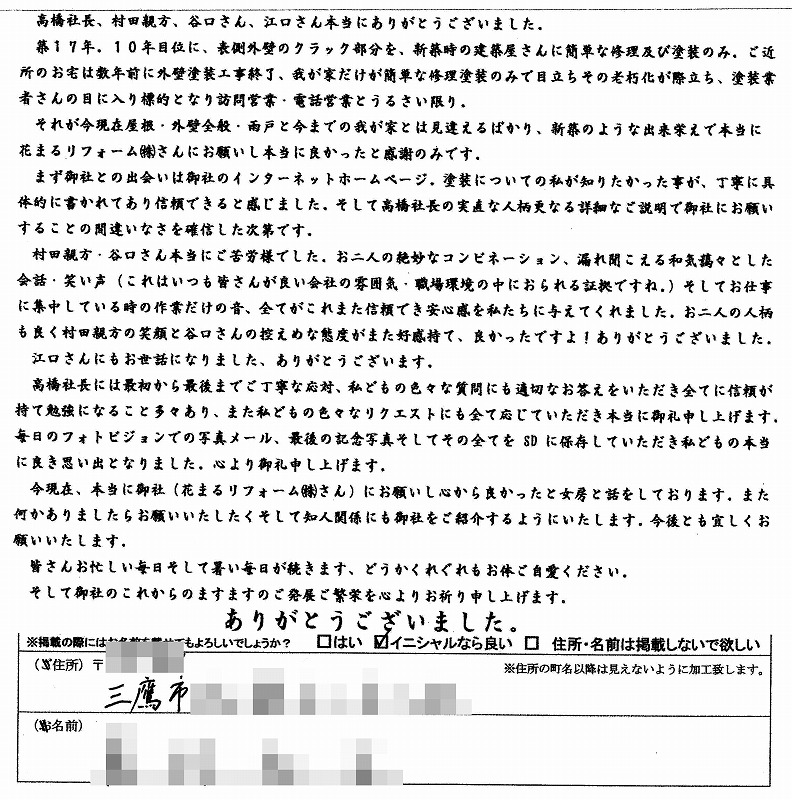 高橋社長、村田親方、谷口さん、江口さん本当にありがとうございました。
築17年。10年目位に、表側外壁のクラック部分を、新築時の建築屋さんに簡単な修理及び塗装のみ。ご近
所のお宅は数年前に外壁塗装工事終了、我が家だけが簡単な修理塗装のみで目立ちその老朽化が際立ち、塗装業
者さんの目に入り標的となり訪問営業・電話営業とうるさい限り。
それが今現在屋根・外壁全般・雨戸と今までの我が家とは見違えるばかり、新築のような出来栄えで本当に
花まるリフォーム㈱さんにお願いし本当に良かったと感謝のみです。
まず御社との出会いは御社のインターネットホームページ。塗装についての私が知りたかった事が、丁寧に具
体的に書かれてあり信頼できると感じました。そして高橋社長の実直な人柄更なる詳細なご説明で御社にお願い
することの間違いなさを確信した次第です。
村田親方・谷口さん本当にご苦労様でした。お二人の絶妙なコンビネーション、漏れ聞こえる和気藹々とした
会話・笑い声（これはいつも皆さんが良い会社の雰囲気・職場環境の中におられる証拠ですね。）そしてお仕事
に集中している時の作業だけの音、全てがこれまた信頼でき安心感を私たちに与えてくれました。お二人の人柄
も良く村田親方の笑顔と谷口さんの控えめな態度がまた好感持て、良かったですよ！ありがとうございました。
江口さんにもお世話になりました、ありがとうございます。
高橋社長には最初から最後までご丁寧な応対、私どもの色々な質問にも適切なお答えをいただき全てに信頼が
持て勉強になること多々あり、また私どもの色々なリクエストにも全て応じていただき本当に御礼申し上げます。
毎日のフォトビジョンでの写真メール、最後の記念写真そしてその全てを SD に保存していただき私どもの本当
に良き思い出となりました。心より御礼申し上げます。
今現在、本当に御社（花まるリフォーム㈱さん）にお願いし心から良かったと女房と話をしております。また
何かありましたらお願いいたしたくそして知人関係にも御社をご紹介するようにいたします。今後とも宜しくお
願いいたします。
皆さんお忙しい毎日そして暑い毎日が続きます、どうかくれぐれもお体ご自愛ください。
そして御社のこれからのますますのご発展ご繁栄を心よりお祈り申し上げます。
ありがとうございました。
※掲載の際にはお名前を載せてもよろしいでしょうか？ □はい ☑イニシャルなら良い □ 住所・名前は掲載しないで欲しい
（ご住所）〒 ※住所の町名以降は見えないように加工致します。
三鷹市
（お名前）